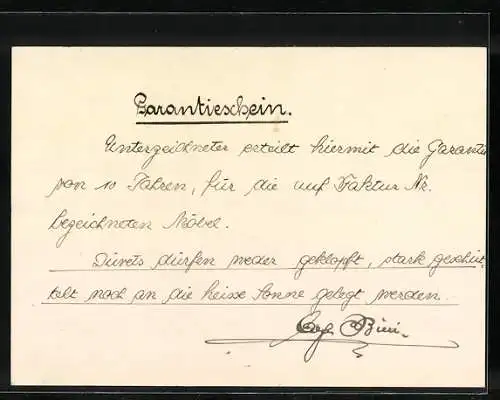 Garantieschein.
Unterzeichneter erteilt hiermit die Garantie
von 10 Jahren, für die auf Faktur Nr.
bezeichneten Möbel.
Duvets dürfen weder geklopft, stark geschüt-
telt noch an die heisse Sonne gelegt werden.